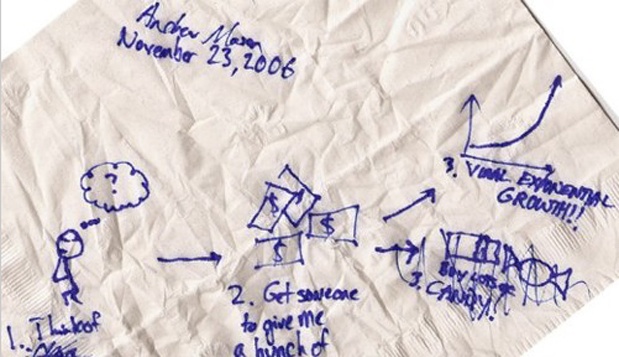 Andrew Mason
November 23, 2006
?
$ $
$
3. VIRAL EXPONENTIAL
GROWTH!!
1. I think of
2. Get someone
to give me
a bunch of
3. BUY
CANDY!